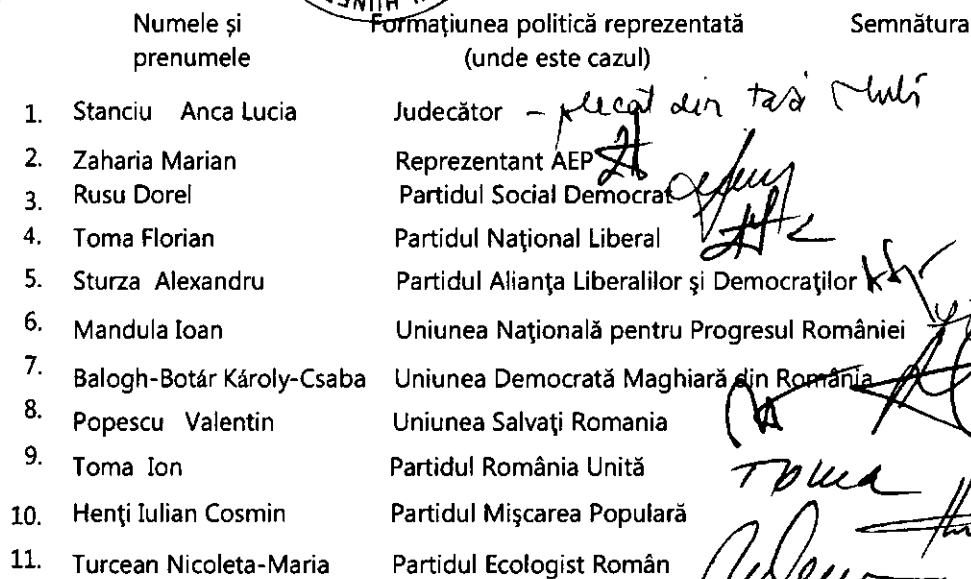 Numele și Formațiunea politică reprezentată Semnătura
prenumele (unde este cazul)
1. Stanciu Anca Lucia Judecător – plecat din
2. Zaharia Marian Reprezentant AEP
3. Rusu Dorel Partidul Social Democrat
4. Toma Florian Partidul Naţional Liberal
5. Sturza Alexandru Partidul Alianţa Liberalilor şi Democraţilor
6. Mandula Ioan Uniunea Naţională pentru Progresul României
7. Balogh-Botár Károly-Csaba Uniunea Democrată Maghiară din România
8. Popescu Valentin Uniunea Salvaţi Romania
9. Toma Ion Partidul România Unită Toma
10. Henţi Iulian Cosmin Partidul Mişcarea Populară
11. Turcean Nicoleta-Maria Partidul Ecologist Român